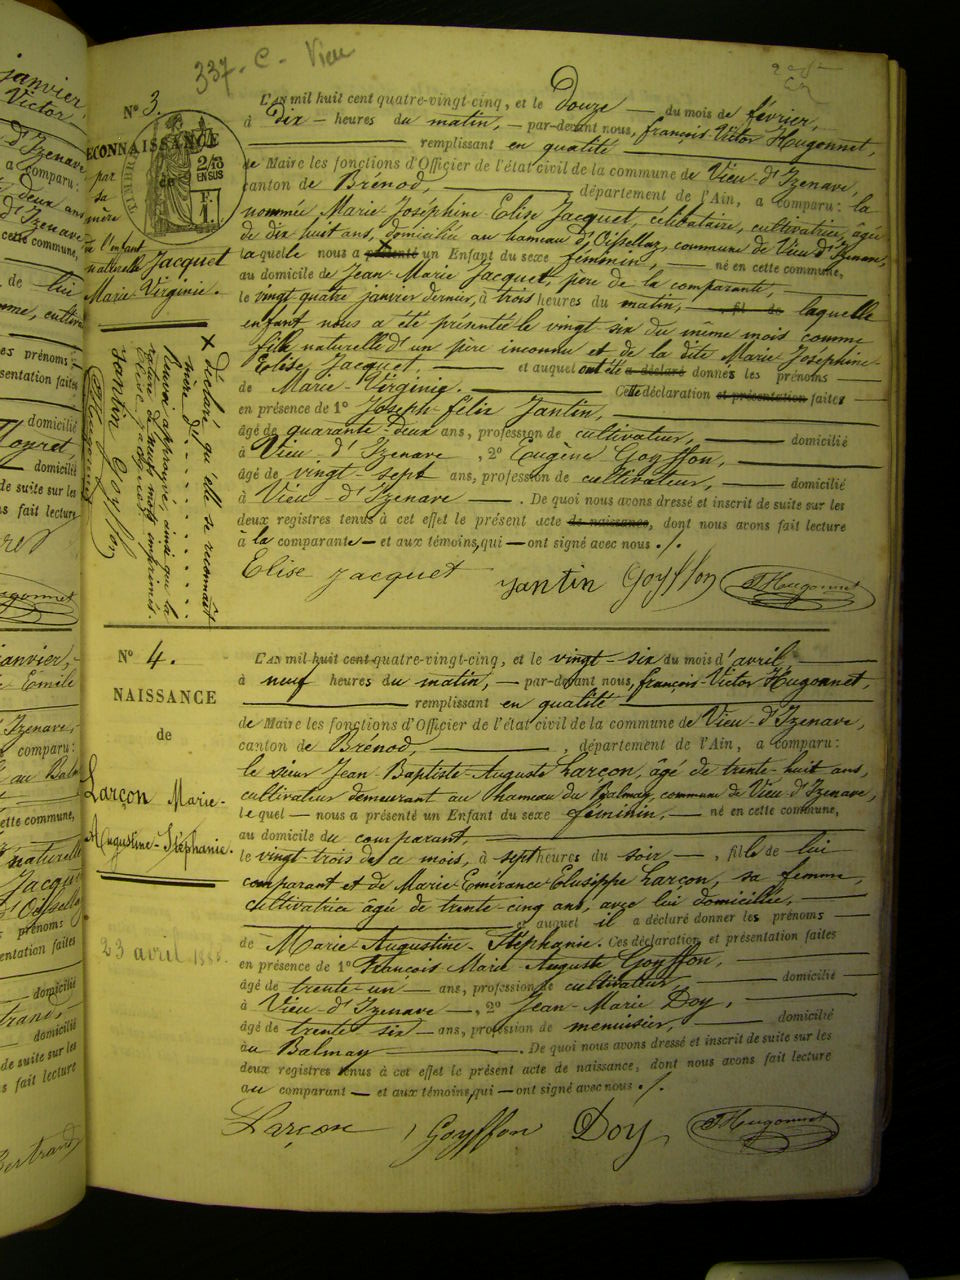 337 - C - Vieu
N° 3.
RECONNAISSANCE
TIMBRE
2/10
EN SUS
F.
1.
de
par
sa
mère
de l'enfant
naturelle Jacquet
Marie Virginie.
L'AN mil huit cent quatre-vingt-cinq, et le douze — du mois de février,
à dix — heures du matin, — par-devant nous, françois-Victor Hugonnet,
remplissant en qualité
de Maire les fonctions d'Officier de l'état civil de la commune de Vieu-d'Izenave,
canton de Brénod, département de l'Ain, a comparu : la
nommée Marie-Joséphine-Elise Jacquet, célibataire, cultivatrice, âgée
de dix huit ans, domiciliée au hameau d'Oisellaz, commune de Vieu d'Izenave,
laquelle nous a présenté un Enfant du sexe féminin, — né en cette commune,
au domicile de Jean-Marie Jacquet, père de la comparante,
le vingt quatre janvier dernier, à trois heures du matin, fil de laquelle
enfant nous a été présentée le vingt six du même mois comme
fille naturelle d'un père inconnu et de la dite Marie Josephine-
Elise Jacquet, et auquel ont été a déclaré donnés les prénoms
de Marie-Virginie. Cette déclaration et présentation faites
en présence de 1° Joseph-félix Jantin,
âgé de quarante-deux ans, profession de cultivateur, domicilié
à Vieu-d'Izenave , 2° Eugène Goyffon,
âgé de vingt-sept ans, profession de cultivateur, domicilié
à Vieu-d'Izenave — . De quoi nous avons dressé et inscrit de suite sur les
deux registres tenus à cet effet le présent acte de naissance, dont nous avons fait lecture
à la comparante — et aux témoins, qui — ont signé avec nous ./.
Elise Jacquet Jantin Goyffon F. Hugonnet
X déclaré qu'elle se reconnaît
mère d'
Renvoi approuvé, ainsi que la
rature de neuf mots imprimés.
Elise Jacquet
Jantin Goyffon
F. Hugonnet
N° 4.
NAISSANCE
de
Larçon Marie-
Augustine-Stéphanie.
23 avril 1885.
L'AN mil huit cent quatre-vingt-cinq, et le vingt-six du mois d'avril,
à neuf heures du matin, — par-devant nous, françois-Victor Hugonnet,
remplissant en qualité
de Maire les fonctions d'Officier de l'état civil de la commune de Vieu-d'Izenave,
canton de Brénod, , département de l'Ain, a comparu :
le sieur Jean-Baptiste-Auguste Larçon, âgé de trente-huit ans,
cultivateur demeurant au hameau du Balmay, commune de Vieu-d'Izenave,
lequel — nous a présenté un Enfant du sexe féminin, — né en cette commune,
au domicile du comparant,
le vingt-trois de ce mois, à sept heures du soir — , fille de lui
comparant et de Marie-Emérance Eluseppe Larçon, sa femme,
cultivatrice âgée de trente-cinq ans, avec lui domiciliée,
et auquel il a déclaré donner les prénoms
de Marie-Augustine-Stéphanie. Ces déclaration et présentation faites
en présence de 1° François Marie Auguste Goyffon,
âgé de trente-un — ans, profession de cultivateur, domicilié
à Vieu-d'Izenave — , 2° Jean-Marie Doy,
âgé de trente six — ans, profession de menuisier, domicilié
au Balmay . De quoi nous avons dressé et inscrit de suite sur les
deux registres tenus à cet effet le présent acte de naissance, dont nous avons fait lecture
au comparant — et aux témoins, qui — ont signé avec nous ./.
Larçon Goyffon Doy F. Hugonnet